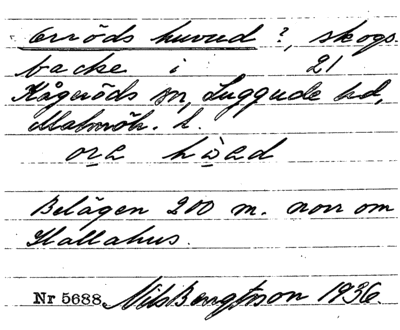 Orröds huvud ?, skogs-
backe i 21
Kågeröds sn, Luggude hd,
Malmöh. l.
ora hòad
Belägen 200 m. norr om
Hallahus.
Nr 5688. Nils Bengtsson 1936.